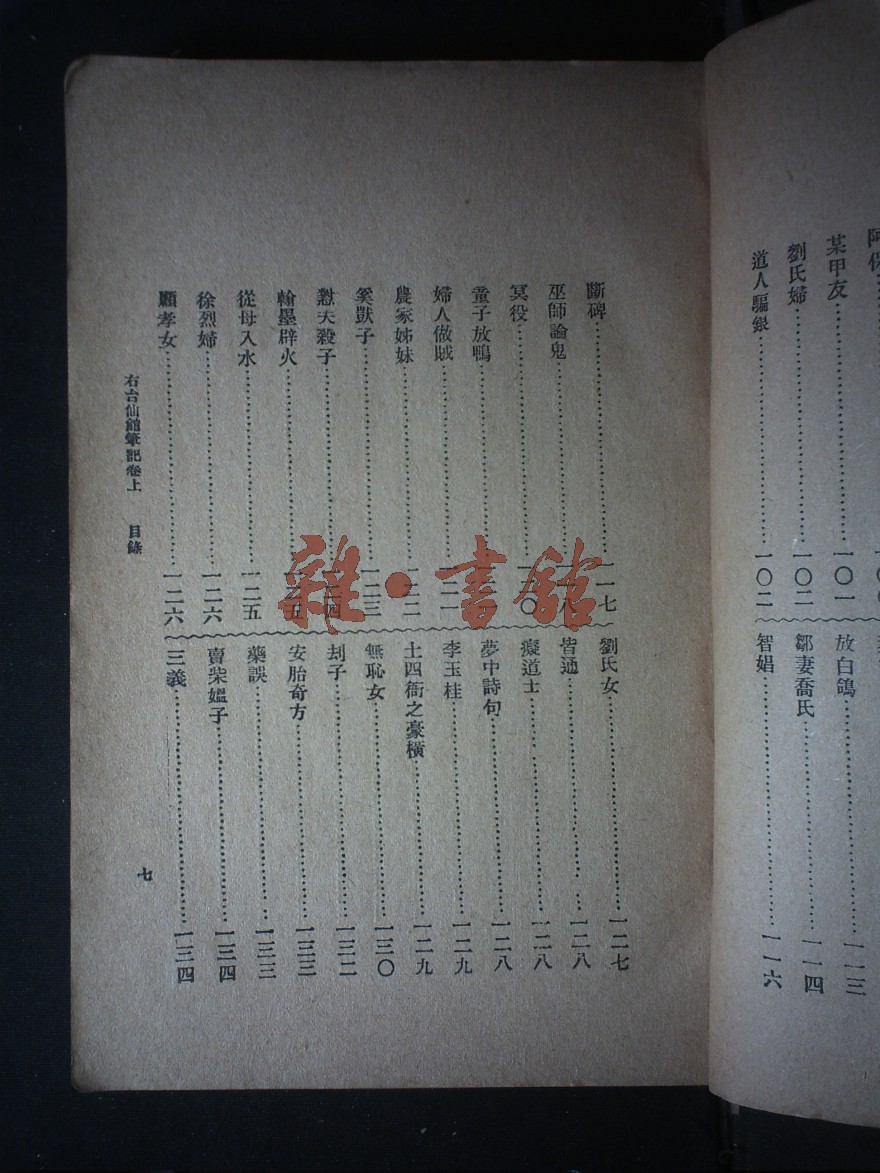 阿保
某甲友……一〇一
劉氏婦……一〇二
道人騙銀……一〇二
放白鴿……一一三
鄒妻喬氏……一一四
智娼……一一六
斷碑……一一七
巫師論鬼……一一八
冥役……一二〇
童子放鴨
婦人做賊……一二一
農家姊妹……一二二
奚獃子……一二三
懟夫殺子……一二四
翰墨辟火……一二五
從母入水……一二五
徐烈婦……一二六
顧孝女……一二六
劉氏女……一二七
皆通……一二八
癡道士……一二八
夢中詩句……一二八
李玉桂……一二九
土四衙之豪橫……一二九
無恥女……一三〇
刦子……一三二
安胎奇方……一三三
藥誤……一三三
賣柴媼子……一三四
三義……一三四
右台仙館筆記卷上 目錄
七
雜·書館